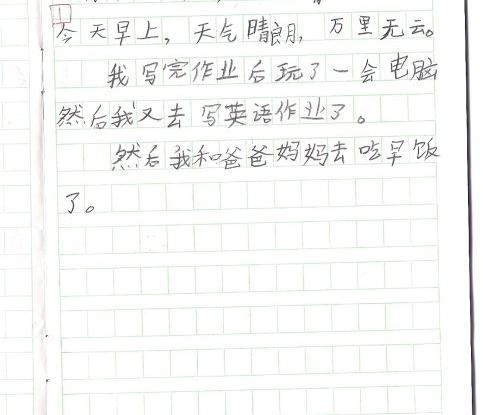 今天早上，天气晴朗，万里无云。
我写完作业后玩了一会电脑
然后我又去写英语作业了。
然后我和爸爸妈妈去吃早饭
了。